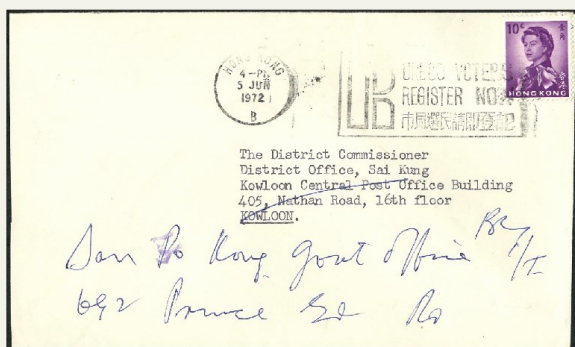 10c
HONG KONG
HONG KONG
4-PM
5 JUN
1972
B
UB
URBCO VOTERS
REGISTER NOW
市局選民請即登記
The District Commissioner
District Office, Sai Kung
Kowloon Central Post Office Building
405, Nathan Road, 16th floor
KOWLOON.
San Po Kong Govt Office
692 Prince Ed Rd